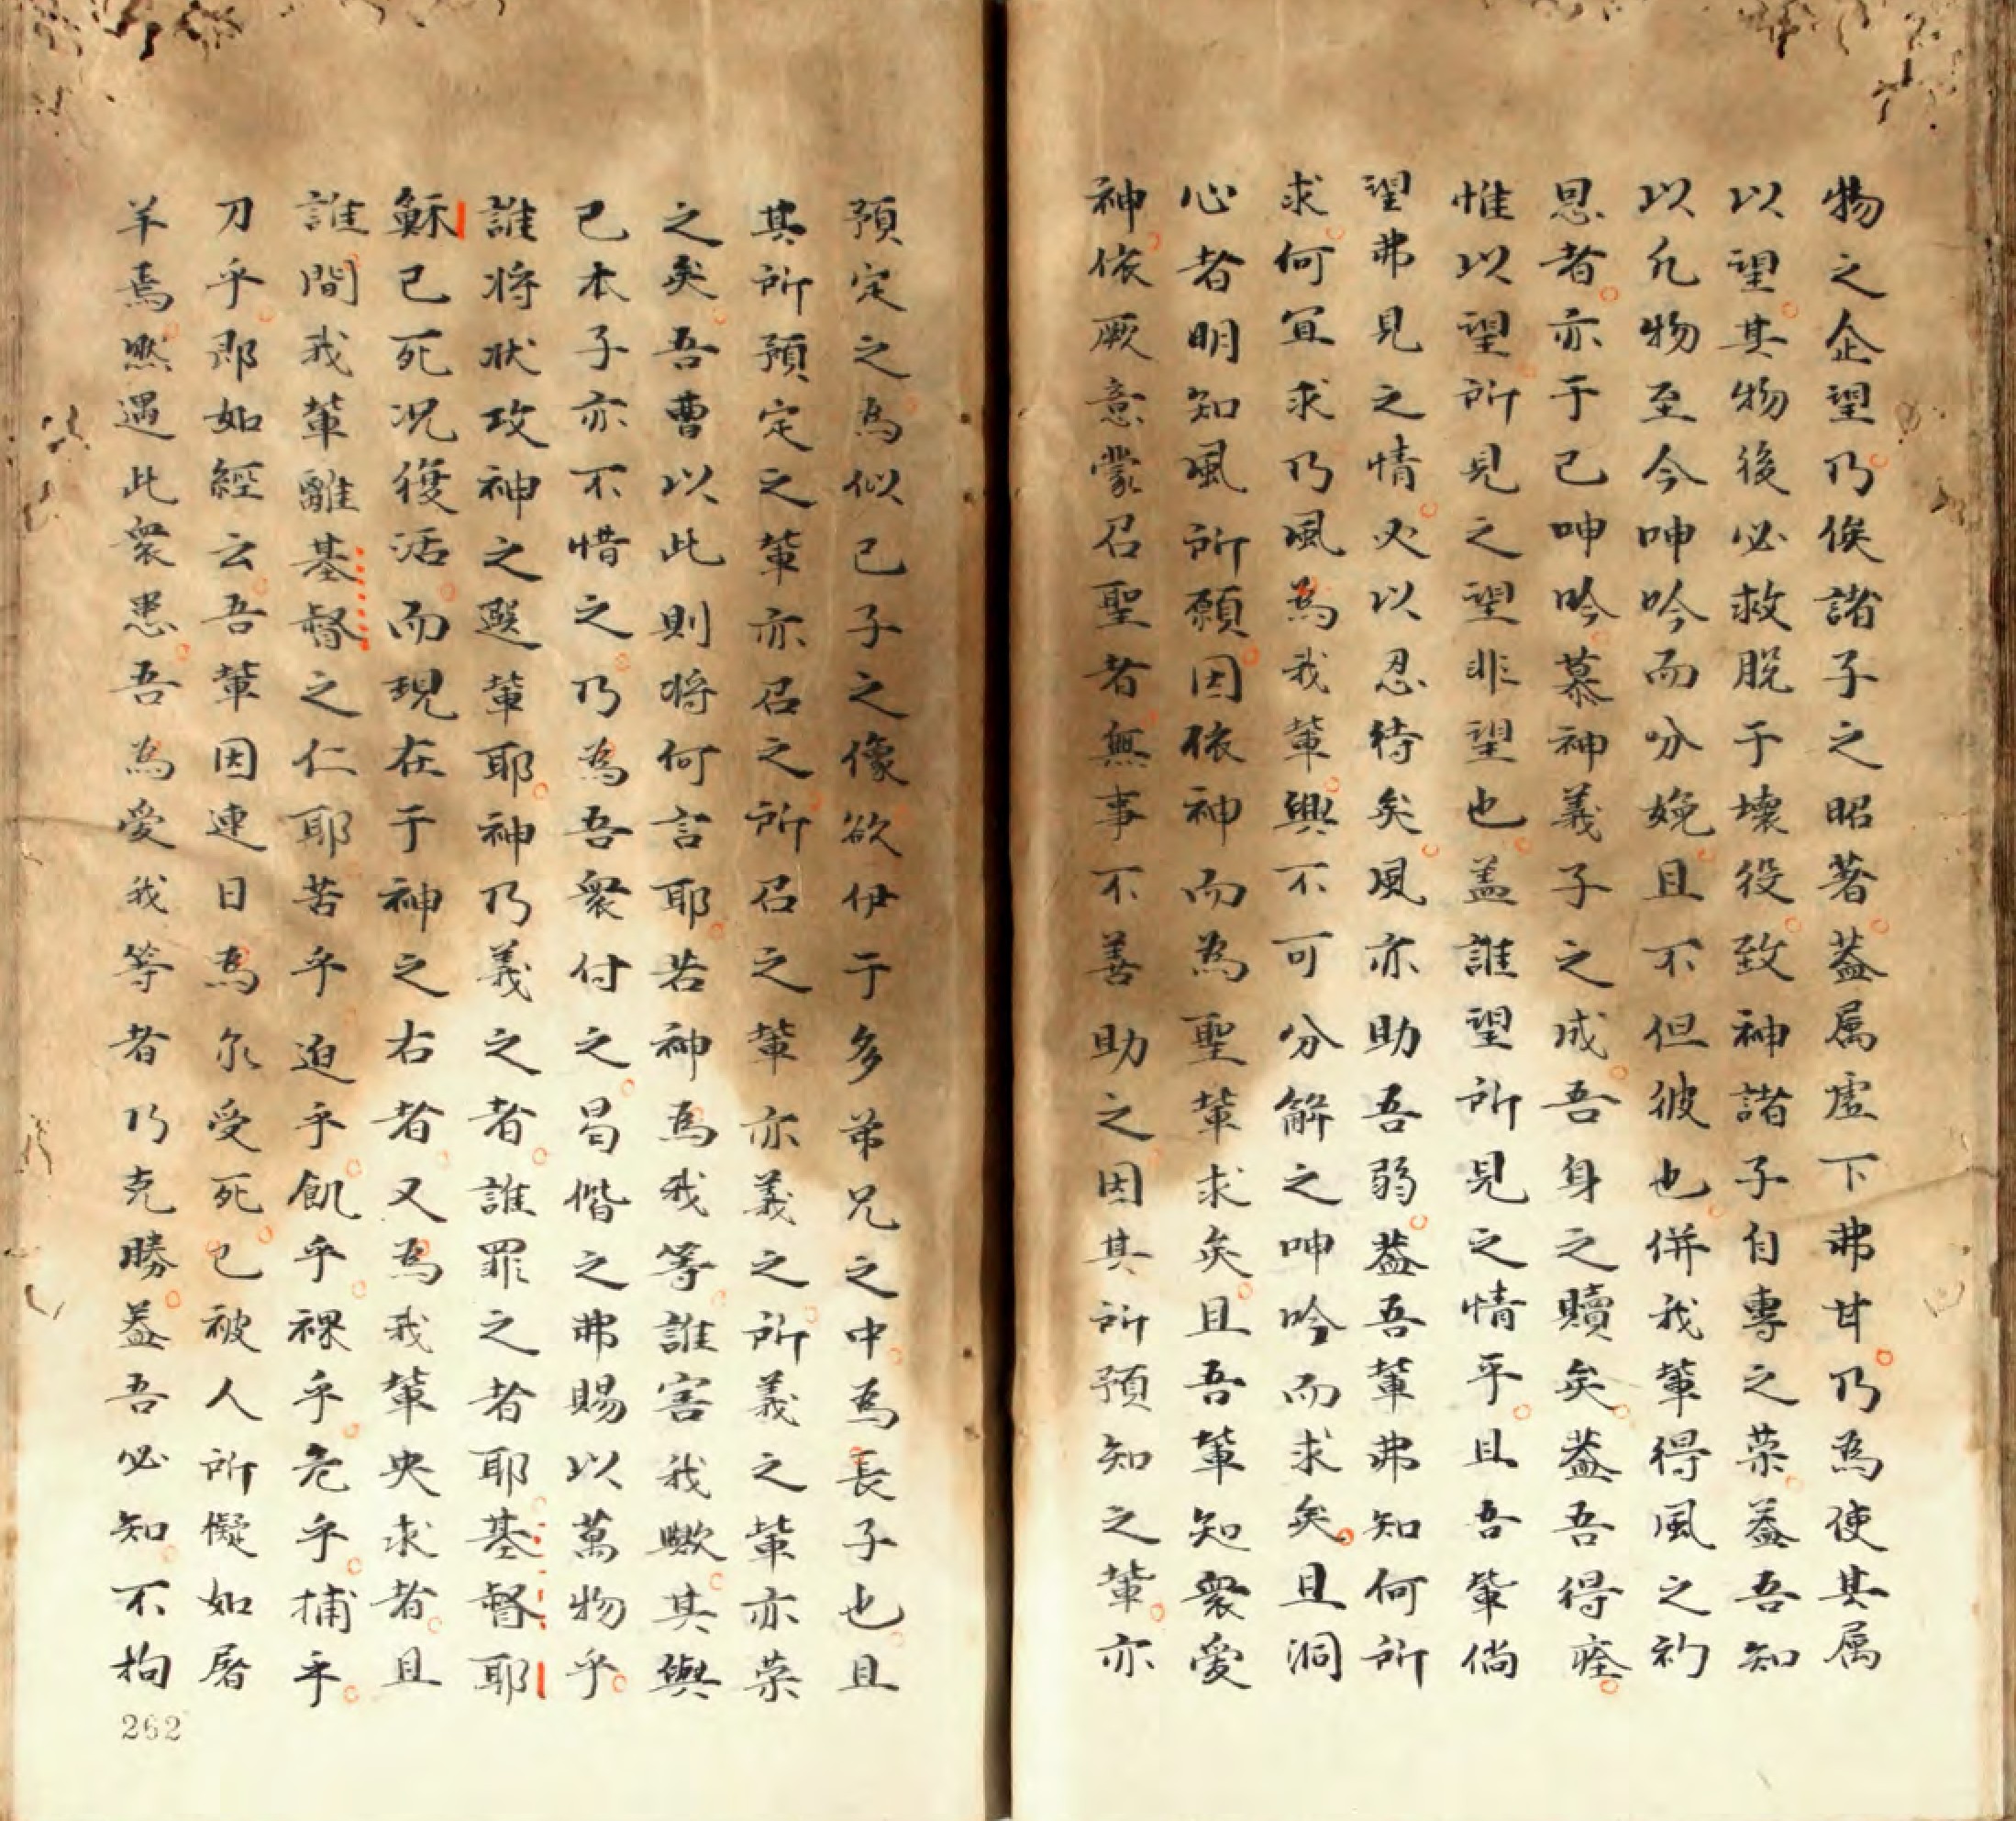 物之企望乃俟諸子之昭著蓋属虛下弗甘乃為使其属
以望其物後必救脱于壞役致神諸子自專之荣蓋吾知
以凢物至今呻吟而分娩且不但彼也併我輩得風之礿
恩者亦于己呻吟慕神義子之成吾身之贖矣蓋吾得痊
惟以望所見之望非望也盖誰望所見之情乎且吾輩倘
望弗見之情必以忍待矣風亦助吾弱蓋吾輩弗知何所
求何宜求乃風為我輩興不可分觧之呻吟而求矣且洞
心者明知風所願因依神而為聖輩求矣且吾輩知衆愛
神依厥意蒙召聖者無事不善助之因其所預知之輩亦
預定之為似己子之像欲伊于多弟兄之中為長子也且
其所預定之輩亦召之所召之輩亦義之所義之輩亦荣
之矣吾曹以此則将何言耶若神為我等誰害我歟其與
己本子亦不惜之乃為吾衆付之曷偕之弗賜以萬物乎
誰将狀攻神之選輩耶神乃義之者誰罪之者耶基督耶
穌已死况復活而現在于神之右者又為我輩央求者且
誰間我輩離基督之仁耶苦乎迫乎飢乎裸乎危乎捕乎
刀乎即如經云吾輩因連日為尔受死已被人所儗如屠
羊焉然遇此衆患吾為愛我等者乃克勝蓋吾必知不拘
262